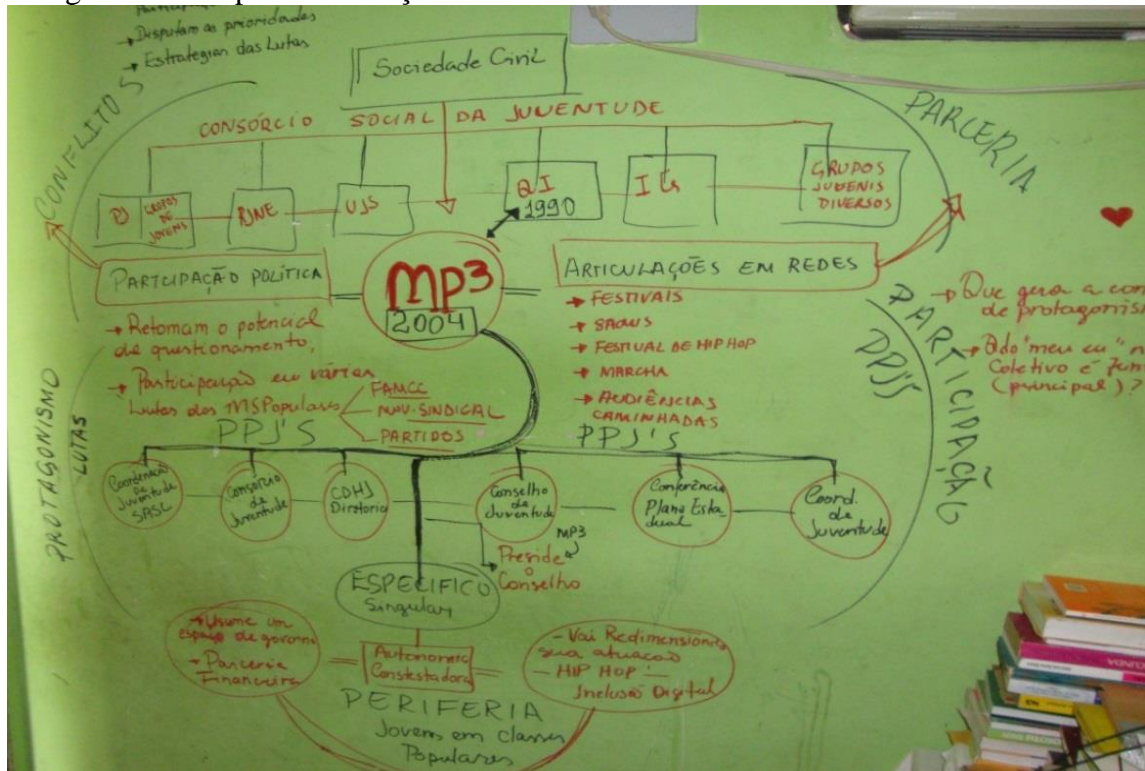 → Disputam as prioridades
→ Estrategias das Lutas
Sociedade Civil
CONFLITOS
CONSÓRCIO SOCIAL DA JUVENTUDE
PARCERIA
PJ
GRUPOS DE JOVENS
RJNE
UJS
QI
1990
GRUPOS
JUVENIS
DIVERSOS
PARTICIPAÇÃO POLÍTICA
MP3
2004
ARTICULAÇÕES EM REDES
→ Retomam o potencial
de questionamento,
→ Participação em várias
Lutas dos MSPopulares
FAMCC
MOV. SINDICAL
PARTIDOS
→ FESTIVAIS
→ FESTIVAL DE HIP HOP
→ MARCHA
→ AUDIÊNCIAS
CAMINHADAS
PARTICIPAÇÃO
PPJ'S
→ Que gera a
de
→ O do "meu eu"
Coletivo é
(principal)?
PROTAGONISMO
LUTAS
PPJ'S
PPJ'S
Coordenação
de
Juventude
SASC
Consorcio
de
Juventude
CDHJ
Diretoria
Conselho
de
Juventude
Conferência
Plano Esta
dual
Coord.
de
Juventude
MP3
Preside
o
Conselho
ESPECIFICO
Singular
→ Assume um
espaço de governo
→ Parceria
Financeira
Autonomia
Constestadora
- Vai Redimensionar
sua atuação
- HIP HOP -
Inclusão Digital
PERIFERIA
Jovens em classes
Populares